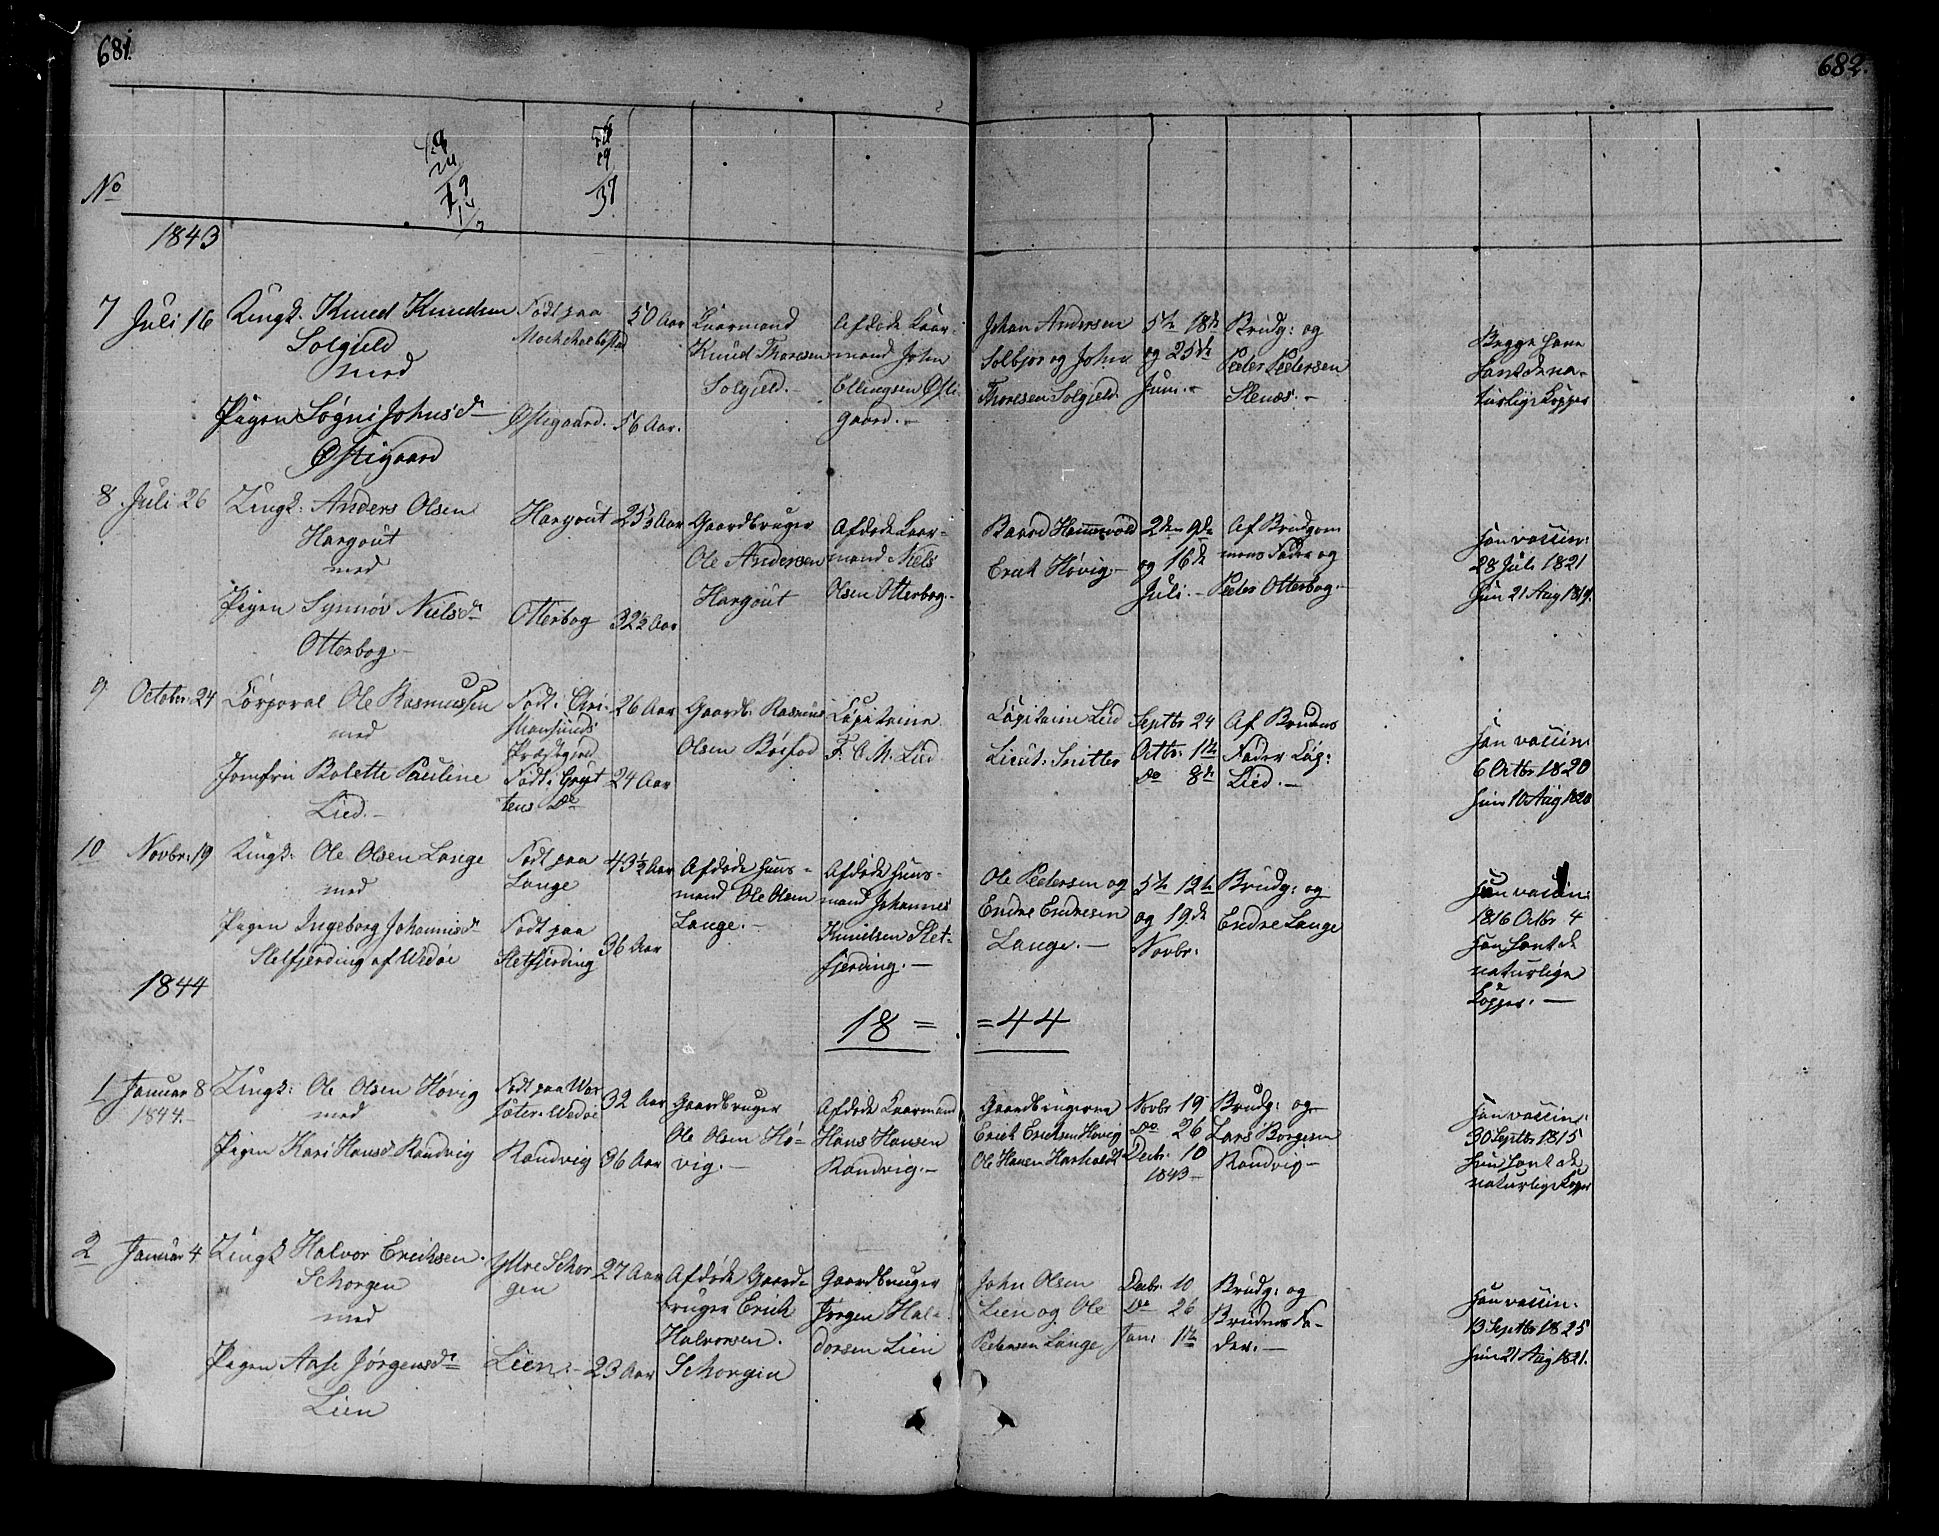 681.
682.
No
37
1843
7 Juli 16 Ungk. Knud Knudsen Solgjeld
med
Pigen Søgni Johnsd. Østigaard
Født paa
Østigaard.
50 Aar
56 Aar.
Kaarmand
Knud Thoresen
Solgjeld.
Afdøde Kaar-
mand John
Ellingsen Østi-
gaard.-
Johan Andersen
Solbjør og John
Thoresen Solgjeld
5te 18de
og 25de
Juni.-
Brudg: og
Peder Pedersen
Stenæs.-
Begge have
havt de na-
turlige Kopper
8. Juli 26 Ungk: Anders Olsen
Hargout
med
Pigen Synnøv Nielsd.
Otterbog.-
Hargout
Otterbog
25½ Aar
32½ Aar
Gaardbruger
Ole Andersen
Hargout
Afdøde Kaar-
mand Niels
Olsen Otterbog.-
Baard
Erik Høvig.-
2den 9de
og 16de
Juli.-
Af Brudgom
mens Fader og
Peder Otterbog.-
Han vaccin:
28 Juli 1821
Hun 21 Aug 1819.
9 October 24 Corporal Ole Rasmussen
med
Jomfru Bolette Pauline
Lied.-
Født i Chri-
stiansunds
Præstegjeld
Født i Gryt
tens Do
26 Aar
24 Aar
Gaardb: Rasmus
Olsen Bøifod
Capitaine
F. C. M. Lied
Capitain Lied
Lieut: Snitter
Septbr 24
Octbr: 1te
Do 8de
Af Brudens
Fader Cap:
Lied.-
Han vaccin:
6 Octbr 1820
Hun 10 Aug 1820
10 Novbr: 19 Ungk: Ole Olsen Lange
med
Pigen Ingeborg Johannisd.
Sletfjerding af Wedøe
Født paa
Lange
Født paa
Sletfjerding
43½ Aar
36 Aar
Afdøde Huus-
mand Ole Olsen
Lange.-
Afdøde Huus-
mand Johannes
Knudsen Slet-
fjerding.-
Ole Pedersen og
Endre Endresen
Lange.-
5te 12te
og 19de
Novbr:
Brudg: og
Endre Lange
Han vaccin:
1816 Octbr 4
havt de
naturlige
Kopper.-
1844
18 = = 44
1 Januar 8
1844.-
Ungk: Ole Olsen Høvig
med
Pigen Kari Hansd. Randvig
Født paa
Wedøe
Randvig
32 Aar
36 Aar
Gaardbruger
Ole Olsen Hø-
vig.-
Afdøde Kaarmand
Hans Hansen
Randvig.-
Gaardbrugerne
Erich Erichsen Høvig
Ole
Novbr 19
Do 26
Decbr. 10
1843-
Brudg: og
Lars Borgesen
Randvig-
Han vaccin:
30 Septbr 1815
Hun havt de
naturlige Kopper
2 Januar 4 Ungk Halvor Erichsen
Schorgen
med
Pigen Aase Jørgensd.
Lien
Ytre Schor
gen
Lien.-
27 Aar
23 Aar
Afdøde Gaard-
bruger Erich
Halvorsen
Schorgen
Gaardbruger
Jørgen Hal-
dorsen Lien
John Olsen
Lien og Ole
Pedersen Lange
Decbr. 10
Do 26
Jan: 1te
Brudg: og
Brudens Fa-
der.-
Han vaccin.
13 Septbr 1825
Hun 21 Aug 1821.